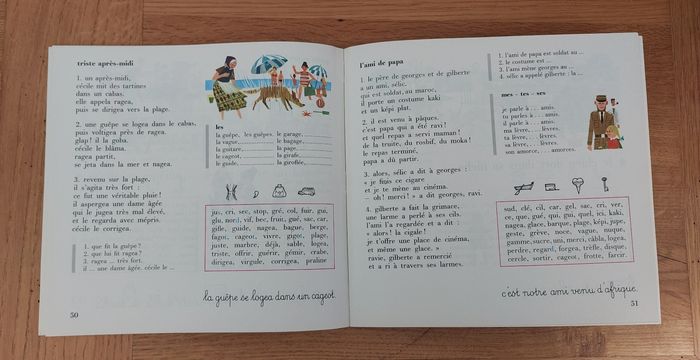 triste après-midi
1. un après-midi,
cécile mit des tartines
dans un cabas.
elle appela ragea,
puis se dirigea vers la plage.
2. une guêpe se logea dans le cabas,
puis voltigea près de ragea.
glap! il la goba.
cécile le blâma.
ragea partit,
se jeta dans la mer et nagea.
3. revenu sur la plage,
il s'agita très fort :
ce fut une véritable pluie!
il aspergea une dame âgée
qui le jugea très mal élevé,
et le regarda avec mépris.
cécile le corrigea.
1. que fit la guêpe?
2. que lui fit ragea?
3. ragea ... très fort.
il ... une dame âgée. cécile le ...
les
la guêpe, les guêpes. le garage,
la vague, le bagage,
la guitare, la page,
le cageot, la girafe,
le guide, la giroflée,
jus, cri, sec, stop, gré, col, fuir, gui,
glu, nord, vif, bec, fruit, gué, sac, car,
gifle, guide, nagea, bague, berge,
fagot, cageot, vivre, gigot, plage,
juste, marbre, déjà, sable, logea,
triste, offrir, guérir, gémir, crabe,
dirigea, virgule, corrigea, praline
la guêpe se logea dans un cageot.
50
l'ami de papa
1. le père de georges et de gilberte
a un ami, sélic.
qui est soldat, au maroc,
il porte un costume kaki
et un képi plat.
2. il est venu à pâques.
c'est papa qui a été ravi!
et quel repas a servi maman!
de la truite, du rosbif, du moka!
le repas terminé,
papa a dû partir.
3. alors, sélic a dit à georges :
« je finis ce cigare
et je te mène au cinéma.
– oh! merci! » a dit georges, ravi.
4. gilberte a fait la grimace,
une larme a perlé à ses cils.
l'ami l'a regardée et a dit :
« alors! la cigale!
je t'offre une place de cinéma,
et même une glace. »
ravie, gilberte a remercié
et a ri à travers ses larmes.
1. l'ami de papa est soldat au ...
2. le costume est ...
3. l'ami mène georges au ...
4. sélic a appelé gilberte : la ...
mes - tes - ses
je parle à ... amis.
tu parles à ... amis.
il parle à ... amis.
ma lèvre, ... lèvres.
ta lèvre, ... lèvres.
sa lèvre, ... lèvres.
son amorce, ... amorces.
sud, clé, cil, car, gel, sac, cri, ver,
ce, que, gué, qui, gui, quel, ici, kaki,
nagea, glace, barque, plage, képi, jupe,
geste, grève, noce, vague, nuque,
gamme, sucre, uni, merci, câbla, logea,
perdre, regard, forgea, trèfle, disque,
cercle, sortir, cageot, frotte, farcir.
c'est notre ami venu d'afrique.
51